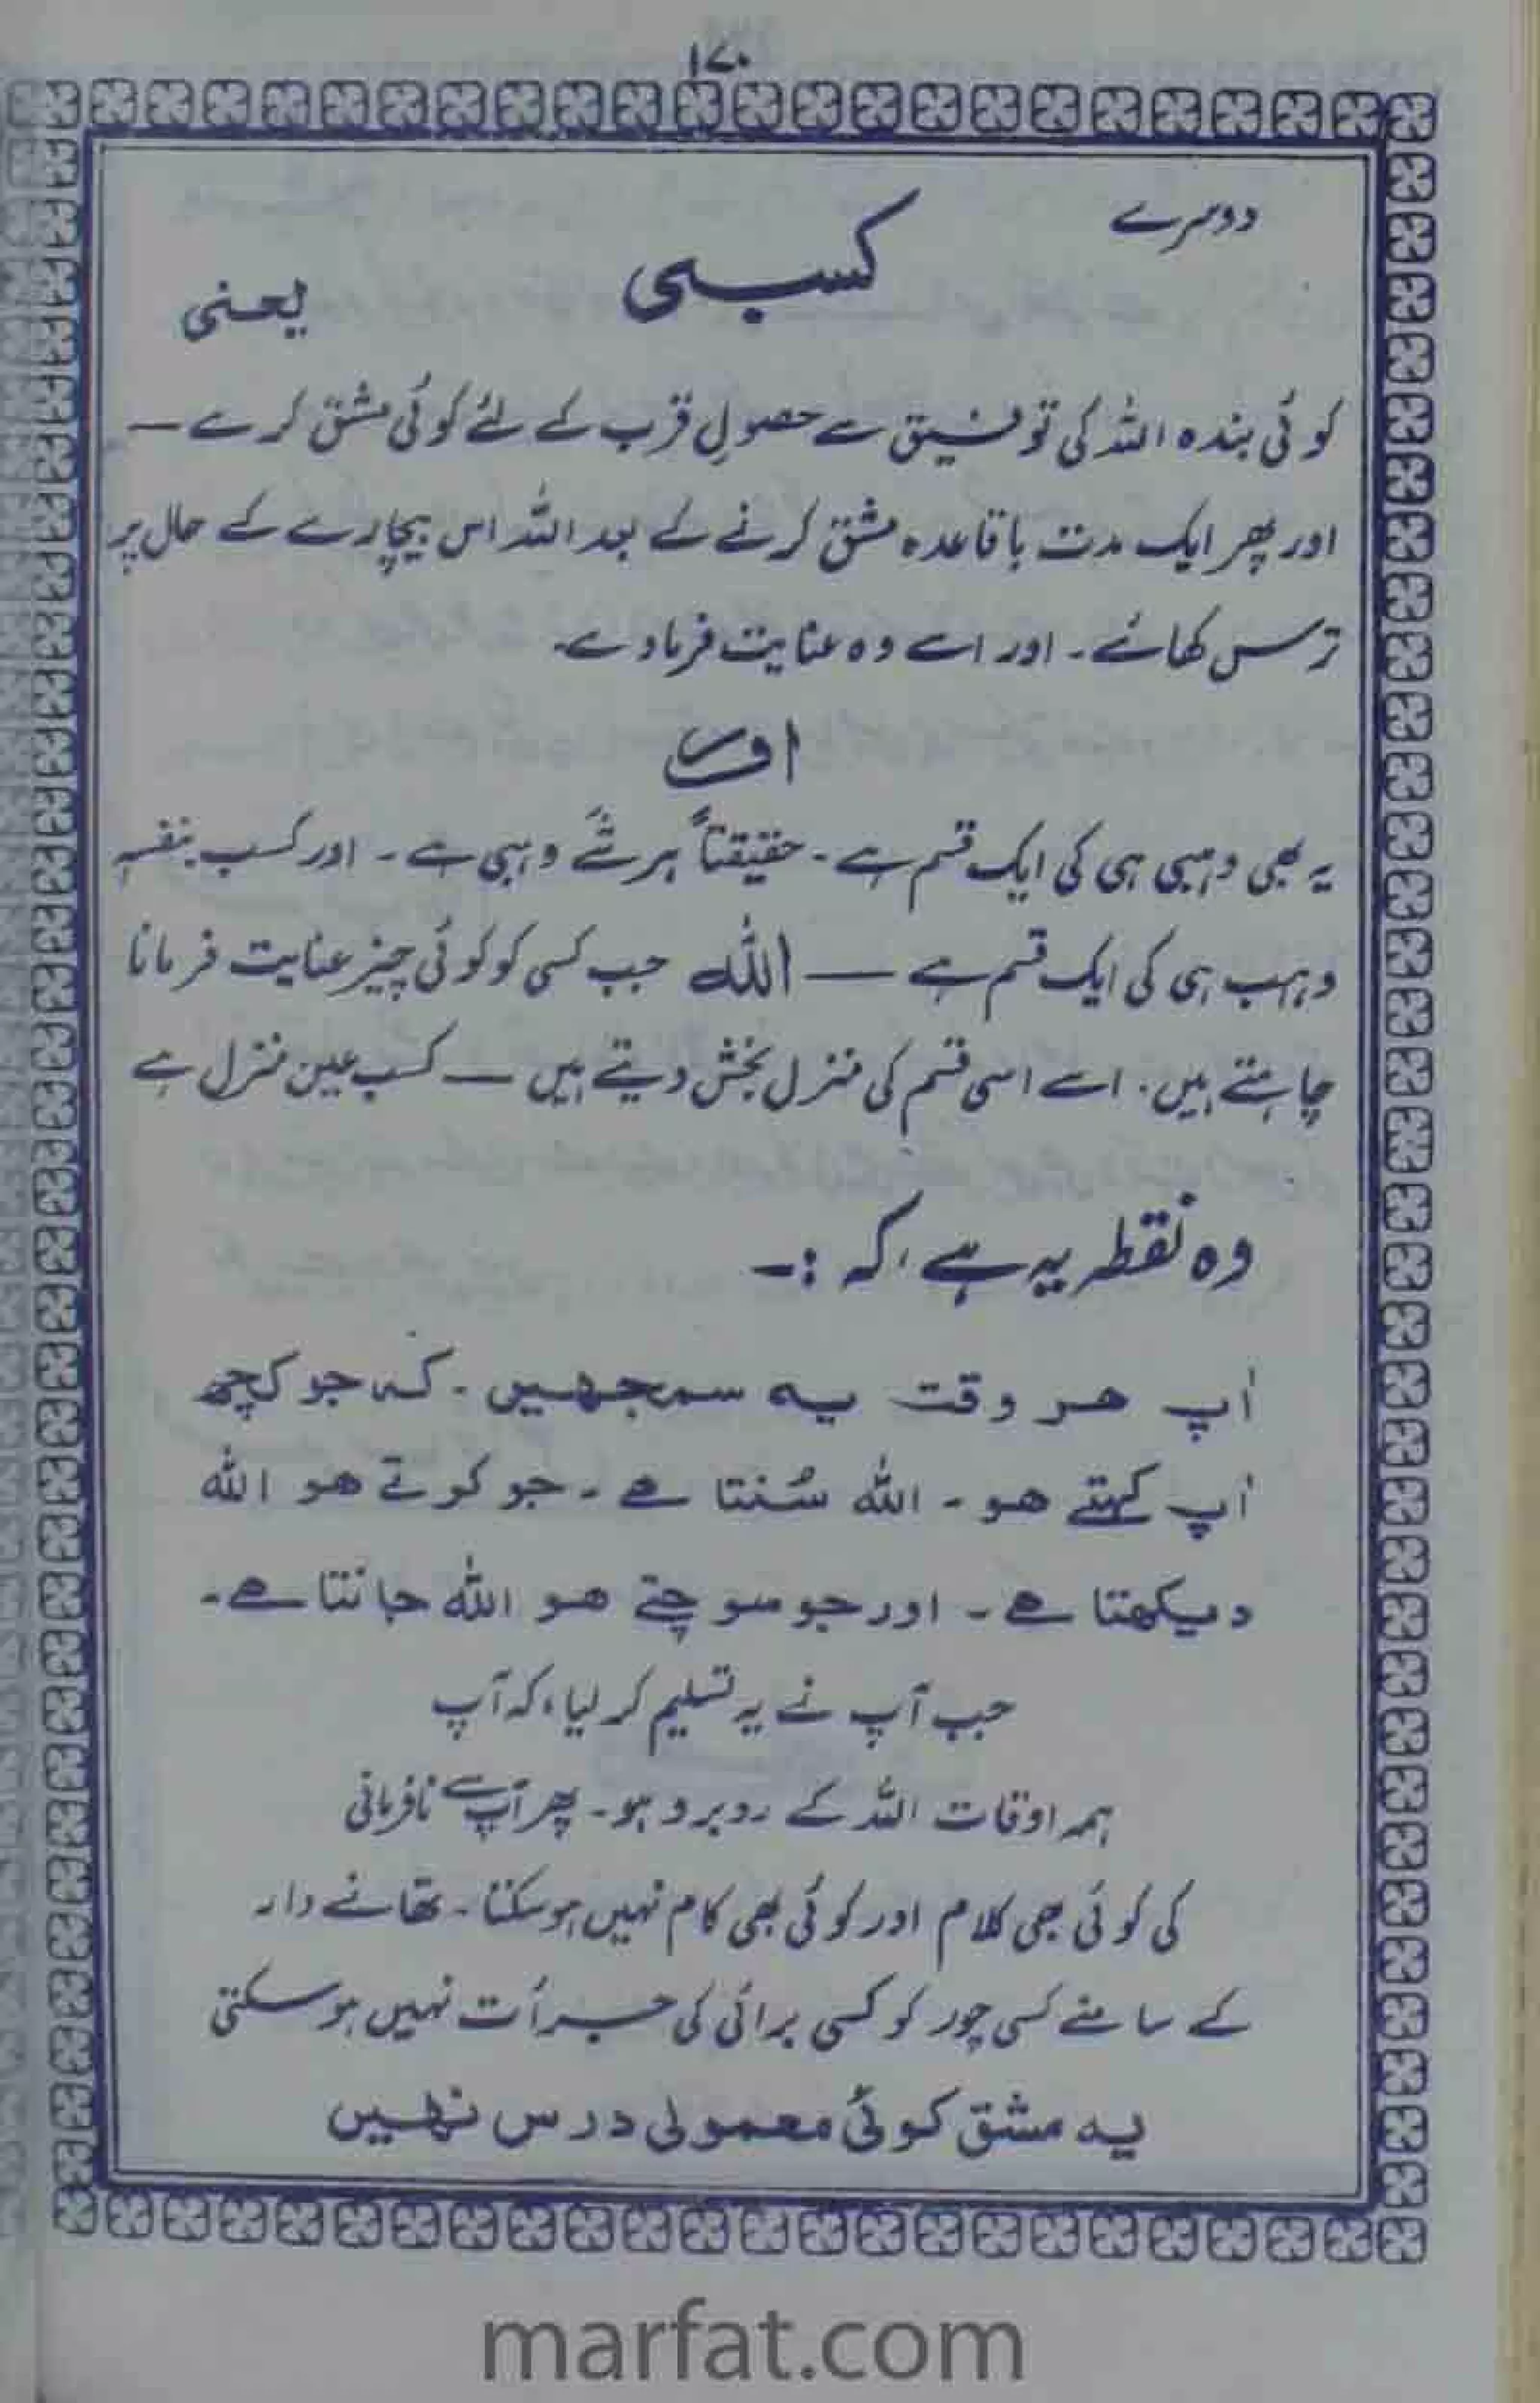 ۱۷۰
دوسرے
کسبی
یعنی
کوئی بندہ اللہ کی توفیق سے حصولِ قرب کے لئے کوئی مشق کرے —
اور پھر ایک مدت باقاعدہ مشق کرنے کے بعد اللہ اس بیچارے کے حال پر
ترس کھائے ۔ اور اسے وہ عنایت فرما دے ۔
اور
یہ بھی وہبی ہی کی ایک قسم ہے ۔ حقیقتاً ہر شَے وہبی ہے ۔ اور کسب بنفسہٖ
وہب ہی کی ایک قسم ہے — اللہ جب کسی کو کوئی چیز عنایت فرمانا
چاہتے ہیں ۔ اسے اسی قسم کی منزل بخش دیتے ہیں — کسب عین منزل ہے
وہ نقطہ یہ ہے ، کہ :-
آپ ہر وقت یہ سمجھیں ۔ کہ جو کچھ
آپ کہتے ہو ۔ اللہ سُنتا ہے ۔ جو کرتے ہو اللہ
دیکھتا ہے ۔ اور جو سوچتے ہو اللہ جانتا ہے ۔
جب آپ نے یہ تسلیم کر لیا ، کہ آپ
ہمہ اوقات اللہ کے روبرو ہو ۔ پھر آپ سے نافرمانی
کی کوئی بھی کلام اور کوئی بھی کام نہیں ہو سکتا ۔ تھانے دار
کے سامنے کسی چور کو کسی برائی کی جرأت نہیں ہو سکتی
یہ مشق کوئی معمولی درس نہیں
marfat.com